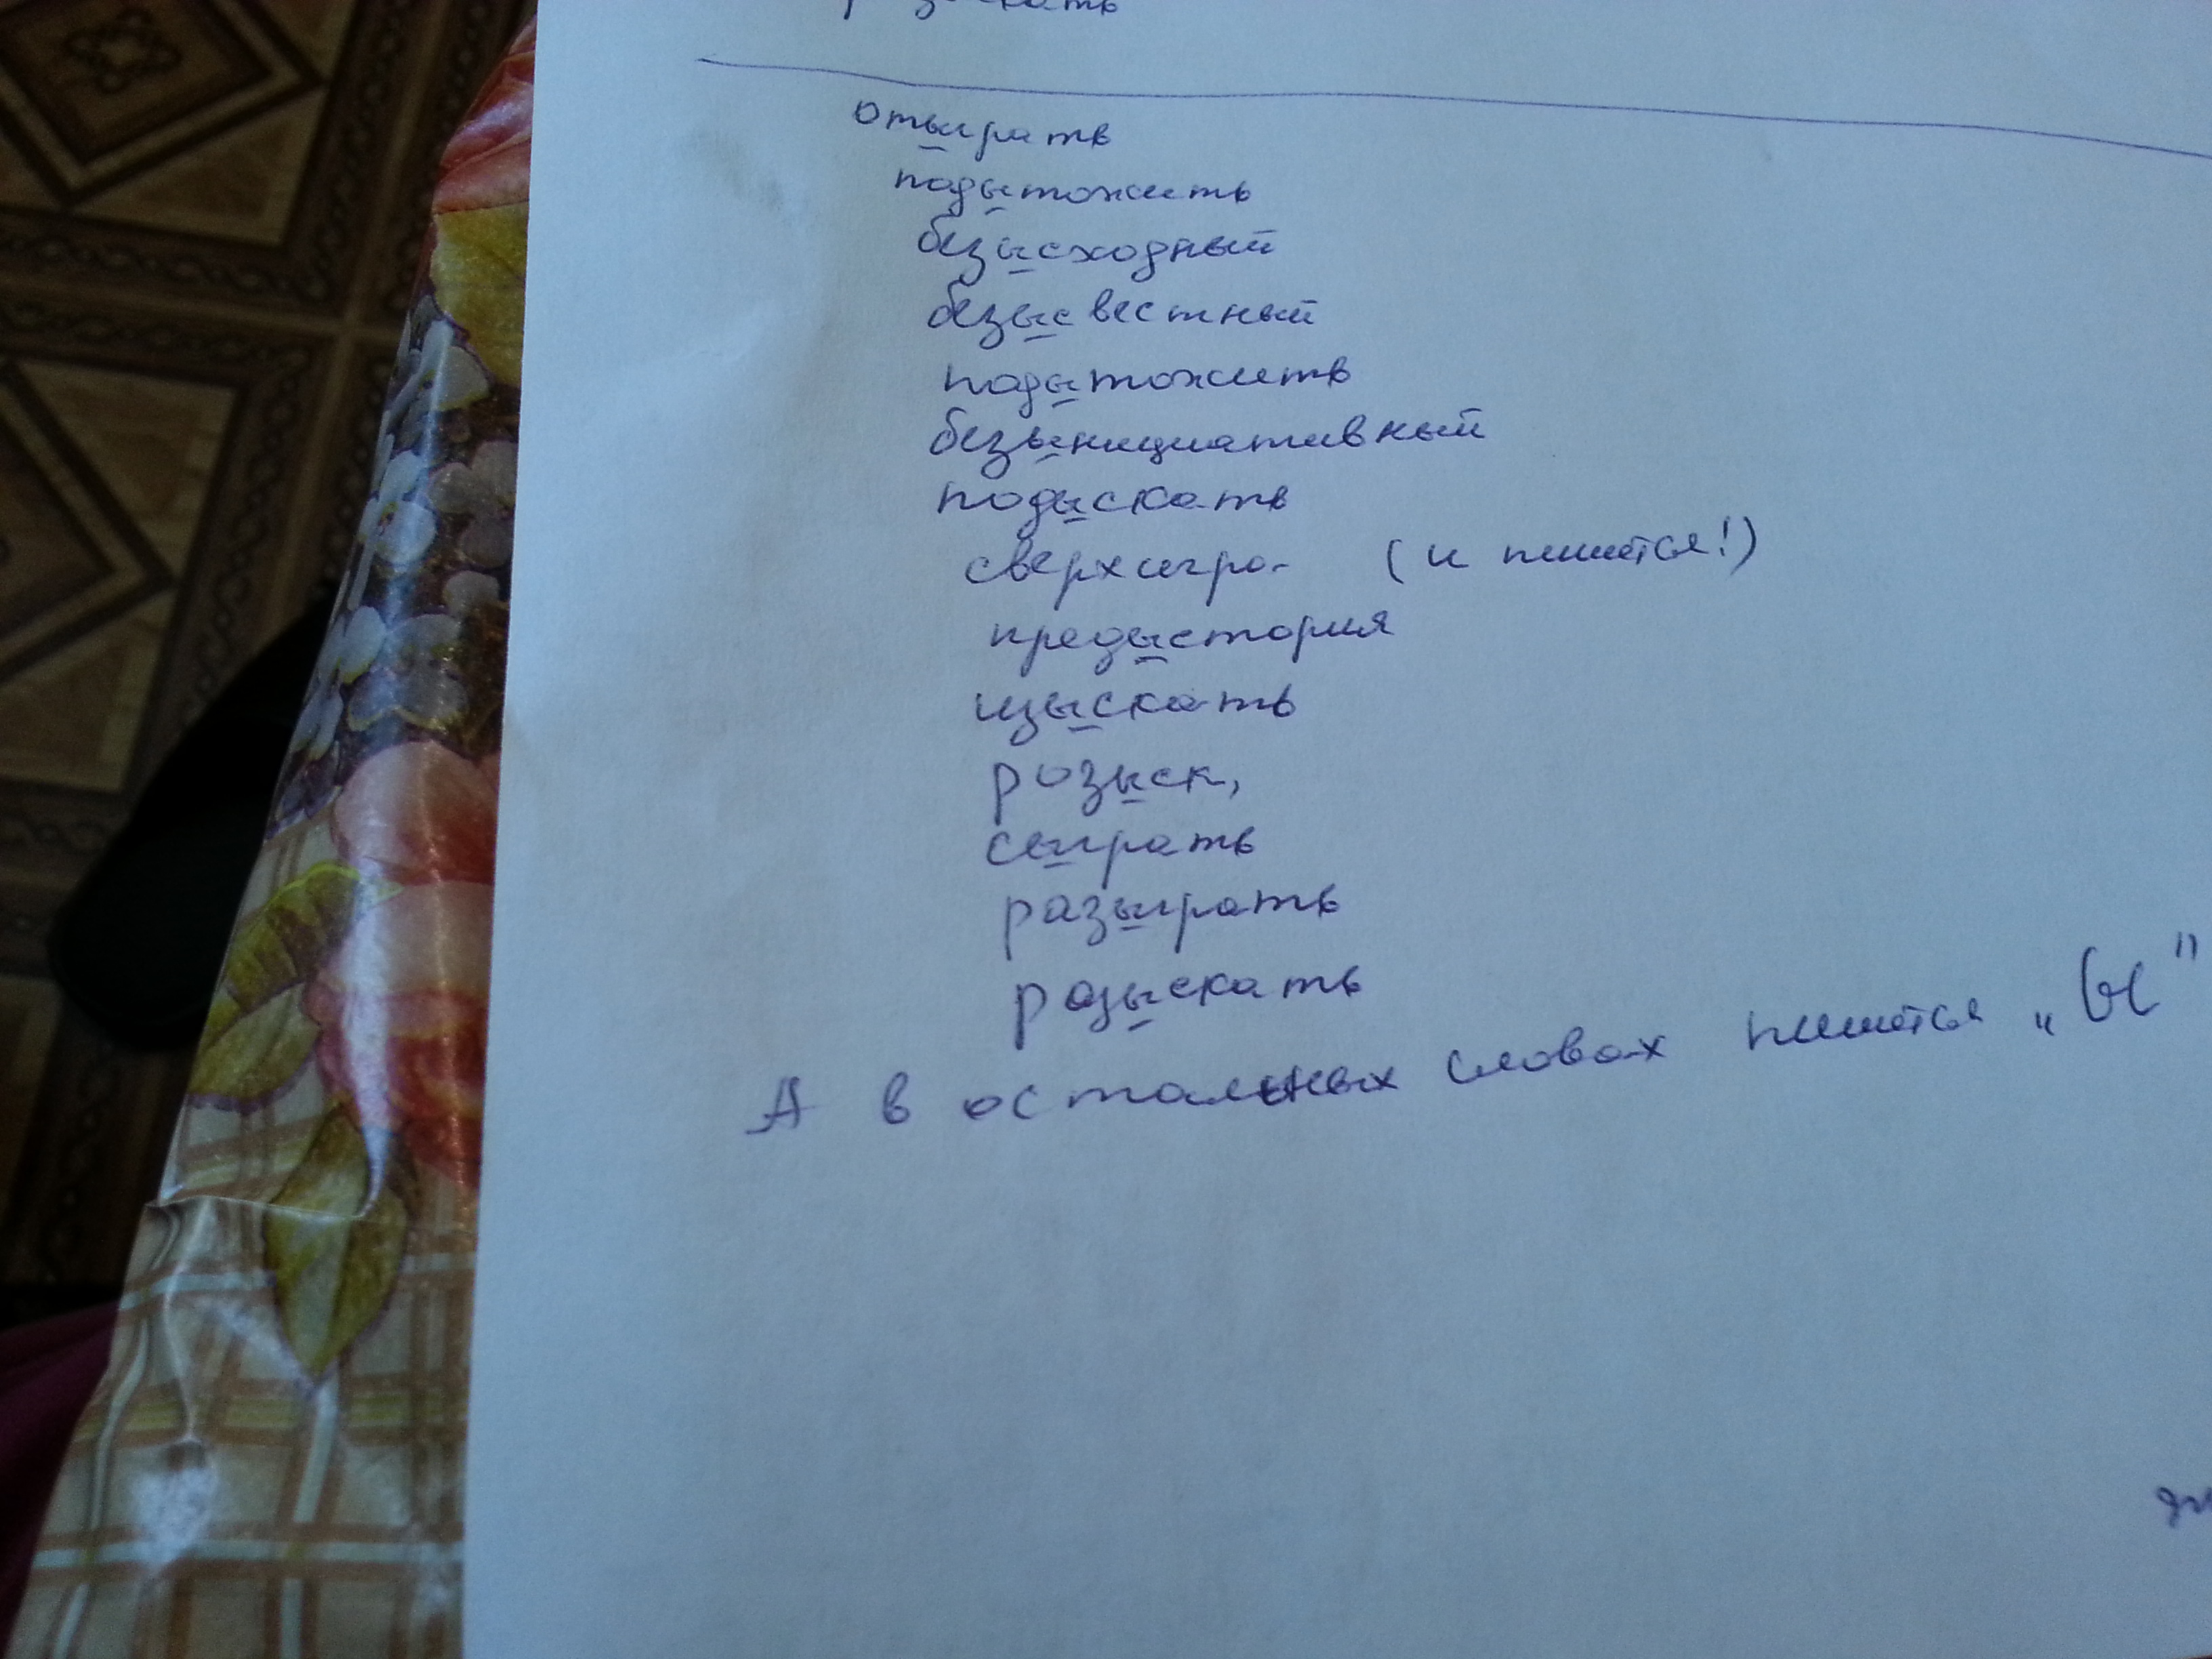 отыграть
подытожить
безысходный
безысвестный
подытожить
безынициативный
подыскать
сверхигра (и пишется!)
предыстория
изыскать
розыск,
сыграть
разыграть
разыскать
А в остальных словах пишется „Ы"